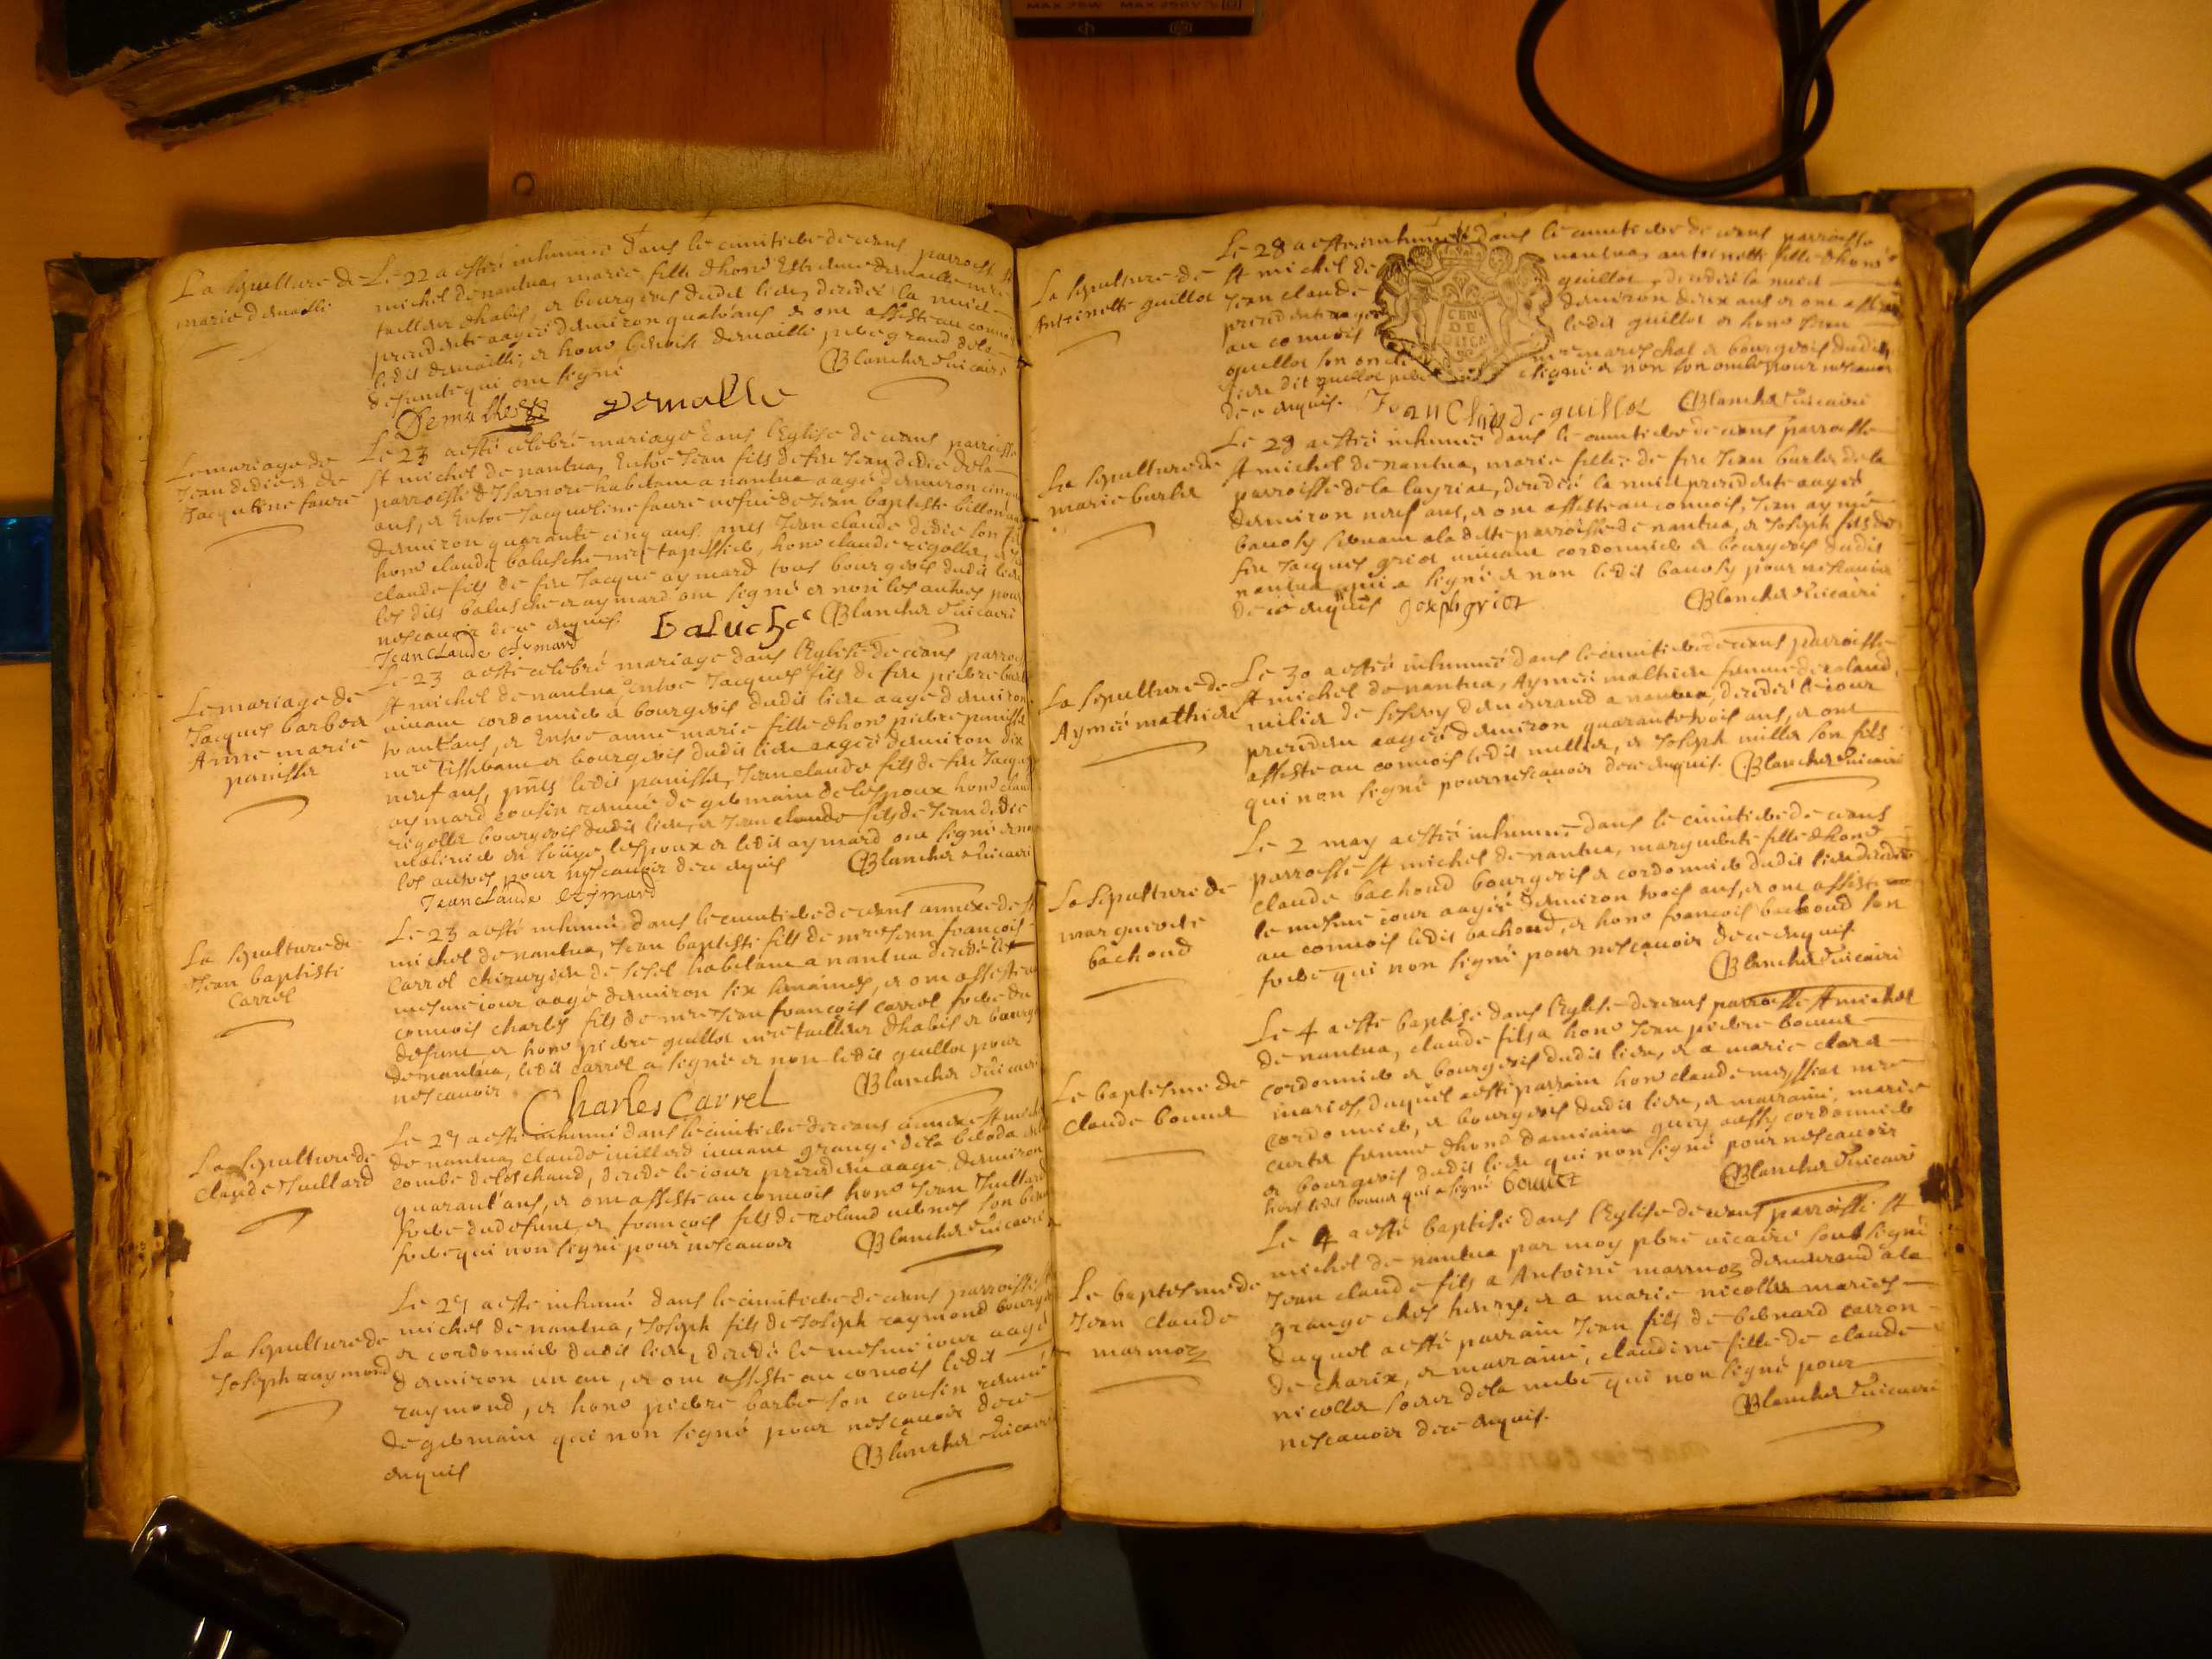 MAX 75W MAX 250V
La sepulture de
marie demaille
Le 22 a esté inhumée dans le cimitiere de ceans parroisse St
michel de nantua, marie fille d'hono Estienne demaille mre
tailleur d'habis, et bourgeois dudit lieu, decedée la nuit
precedente aagée denuiron quatr'ans et ont assisté au conuoy
ledit demaille, et hono demaille pere grand de la
defunte qui ont signé
Blanchet vicaire
Demaille
Demalle
Le mariage de
Jean dedie et de
Jacqueline faure
Le 23 a esté celebré mariage dans l'Eglise de ceans parroisse
St michel de nantua, Entre Jean fils de feu Jean dedie de la
parroisse d'Isarnore habitant a nantua aagé denuiron cinquante
ans, et Entre Jacqueline faure vefue de Jean baptiste billon
denuiron quarante cinq ans. pnts Jean claude dedie son fils
hono claude balusche mre tapissier, hono claude rigollet, et
claude fils de feu Jacque aymard tous bourgeois dudit lieu
les dits balusche et aymard ont signé et non les autres pour
nescauoir de ce enquis
Baluche
Blanchet vicaire
Jean Claude Eymard
Le mariage de
Jacques barbet
Anne marie
panisset
Le 23 a esté celebré mariage dans l'Eglise de ceans parroisse
St michel de nantua Entre Jacques fils de feu pierre barbet
viuant cordonnier et bourgeois dudit lieu aagé denuiron
trant'ans, et Entre anne marie fille d'hono pierre panisset
mre Tisserant et bourgeois dudit lieu aagée denuiron dix
neuf ans, pnts ledit panisset, Jean claude fils de feu Jacque
aymard cousin remué de germain de lespoux hono claude
rigollet bourgeois dudit lieu, et Jean claude fils de Jean dedie
lespoux et ledit aymard ont signé et non
les autres pour nescauoir de ce enquis
Blanchet vicaire
Jean Claude Eymard
La sepulture de
Jean baptiste
Carrel
Le 23 a esté inhumé dans le cimitiere de ceans annexe de St
michel de nantua, Jean baptiste fils de mre Jean francois
Carrel chirurgien de sesel habitant a nantua decedé le
mesme iour aagé denuiron six semaines, et ont assisté au
conuois charles fils de mre Jean francois carrel frere du
defunt, et hono pierre guillot mre tailleur d'habis et bourgeois
de nantua, ledit carrel a signé et non ledit guillot pour
nescauoir
Charles Carrel
Blanchet vicaire
La sepulture de
Claude Juillard
Le 27 a esté inhumé dans le cimitiere de ceans annexe St michel
de nantua, claude iuillard viuant granger de la
combe deleschaud, decedé le iour precedent aagé denuiron
quarant'ans, et ont assisté au conuois hono Jean Juillard
frere dudefunt, et francois fils de roland son beau
frere qui n'ont signé pour nescauoir
Blanchet vicaire
La sepulture de
Joseph raymond
Le 27 a esté inhumé dans le cimitiere de ceans parroisse
michel de nantua, Joseph fils de Joseph raymond bourgeois
et cordonnier dudit lieu, decedé le mesme iour aagé
denuiron un an, et ont assisté au conuois ledit
raymond, et hono pierre barbet son cousin remué
de germain qui n'ont signé pour nescauoir de ce
enquis
Blanchet vicaire
La sepulture de
Antoinette guillot
Le 28 a esté inhumée dans le cimitiere de ceans parroisse
St michel de nantua, antoinette fille d'hono
Jean claude guillot, decedée la nuit
precedente aagée denuiron deux ans et ont assisté
au conuois ledit guillot et hono Jean
guillot son oncle mre mareschal et bourgeois dudit
lieu dit guillot pere a signé et non son oncle pour nescauoir
de ce enquis.
GEN DE
Jean Claude guillot
Blanchet vicaire
La sepulture de
marie burlet
Le 29 a esté inhumée dans le cimitiere de ceans parroisse
St michel de nantua, marie fille de feu Jean burlet de la
parroisse de la layriat, decedée la nuit precedente aagée
denuiron neuf ans, et ont assisté au conuois, Jean aymé
seruant a la dite parroisse de nantua, et Joseph fils de
feu Jacques griot viuant cordonnier et bourgeois dudit
nantua, qui a signé et non ledit pour nescauoir
de ce enquis
Joseph griot
Blanchet vicaire
La sepulture de
Aymée mathieu
Le 30 a esté inhumée dans le cimitiere de ceans parroisse
St michel de nantua, Aymée mathieu femme de roland
millet de demeurant a nantua, decedée le iour
precedent aagée denuiron quarante trois ans, et ont
assisté au conuois ledit millet, et Joseph millet son fils
qui n'ont signé pour nescauoir de ce enquis.
Blanchet vicaire
La sepulture de
marguerite
bachoud
Le 2 may a esté inhumée dans le cimitiere de ceans
parroisse St michel de nantua, marguerite fille d'hono
claude bachoud bourgeois et cordonnier dudit lieu decedée
le mesme iour aagée denuiron trois ans, et ont assisté
au conuois ledit bachoud, et hono francois bachoud son
frere qui n'ont signé pour nescauoir de ce enquis
Blanchet vicaire
Le baptesme de
claude bonnet
Le 4 a esté baptisé dans l'Eglise de ceans parroisse St michel
de nantua, claude fils a hono Jean pierre bonnet
cordonnier et bourgeois dudit lieu, et a marie claret
mariés, duquel a esté parrain hono claude meyssiat mre
cordonnier, et bourgeois dudit lieu, et marraine, marie
femme d'hono damiain aussy cordonnier
et bourgeois dudit lieu qui n'ont signé pour nescauoir
hors ledit bonnet qui a signé
bonnet
Blanchet vicaire
Le baptesme de
Jean claude
marmoz
Le 4 a esté baptisé dans l'Eglise de ceans parroisse St
michel de nantua par moy pbre vicaire soubsigné
Jean claude fils a Antoine marmoz demeurand a la
grange ches henry, et a marie nicollet mariés
duquel a esté parrain Jean fils de bernard carron
de charix, et marraine, claudine fille de claude
nicollet soeur de la mere qui n'ont signé pour
nescauoir de ce enquis.
Blanchet vicaire